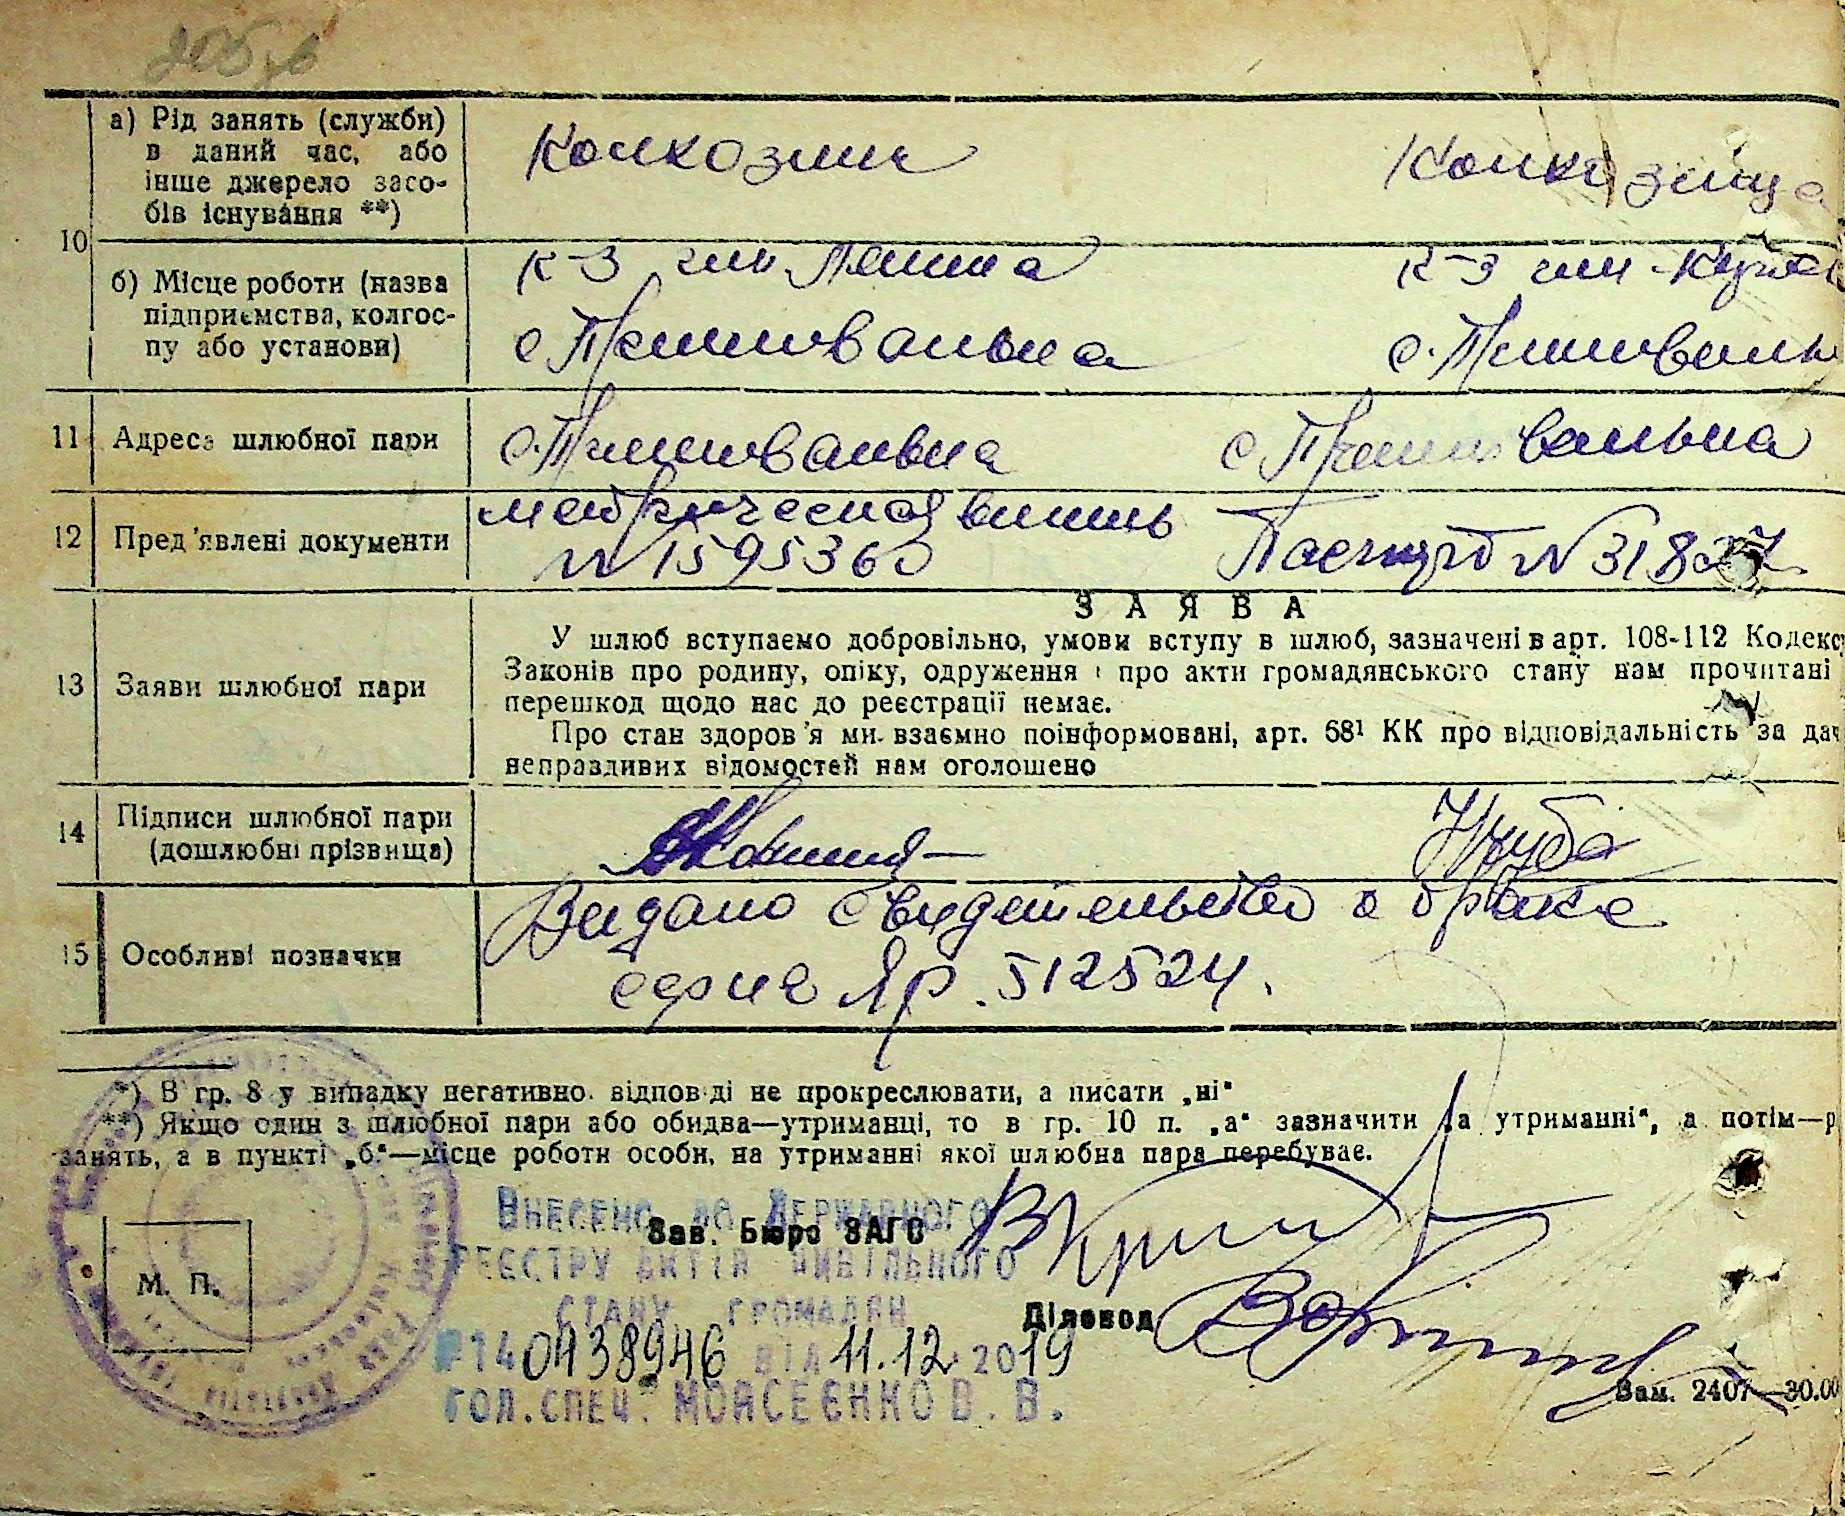 10
а) Рід занять (служби)
в даний час, або
інше джерело засо-
бів існування **)
Колхозник Колхозница
б) Місце роботи (назва
підприємства, колгос-
пу або установи)
к-з им Ленина к-з им.
с.
11 Адреса шлюбної пари с.
12 Пред'явлені документи
метрическая випись Паспорт N 31827
N 1595360
13 Заяви шлюбної пари
ЗАЯВА
У шлюб вступаємо добровільно, умови вступу в шлюб, зазначені в арт. 108-112 Кодекс
Законів про родину, опіку, одруження і про акти громадянського стану нам прочитані
перешкод щодо нас до реєстрації немає.
Про стан здоров'я ми взаємно поінформовані, арт. 68¹ КК про відповідальність за дач
неправдивих відомостей нам оголошено
14 Підписи шлюбної пари
(дошлюбні прізвища)
15 Особливі позначки
Видано свидетельство о браке
серия Яр. 512524.
*) В гр. 8 у випадку негативно. відповді не прокреслювати, а писати „ні"
**) Якщо один з шлюбної пари або обидва—утриманці, то в гр. 10 п. „а" зазначити „а утриманні", а потім—р
занять, а в пункті „б"—місце роботи особи, на утриманні якої шлюбна пара перебуває.
Зав. Бюро ЗАГС
М. П.
Діловод
Внесено до Державного
реєстру актів цивільного
стану громадян
№140438946 від 11.12 2019
гол.спец. Моисеєнко В. В.
Зам. 2407—30.00